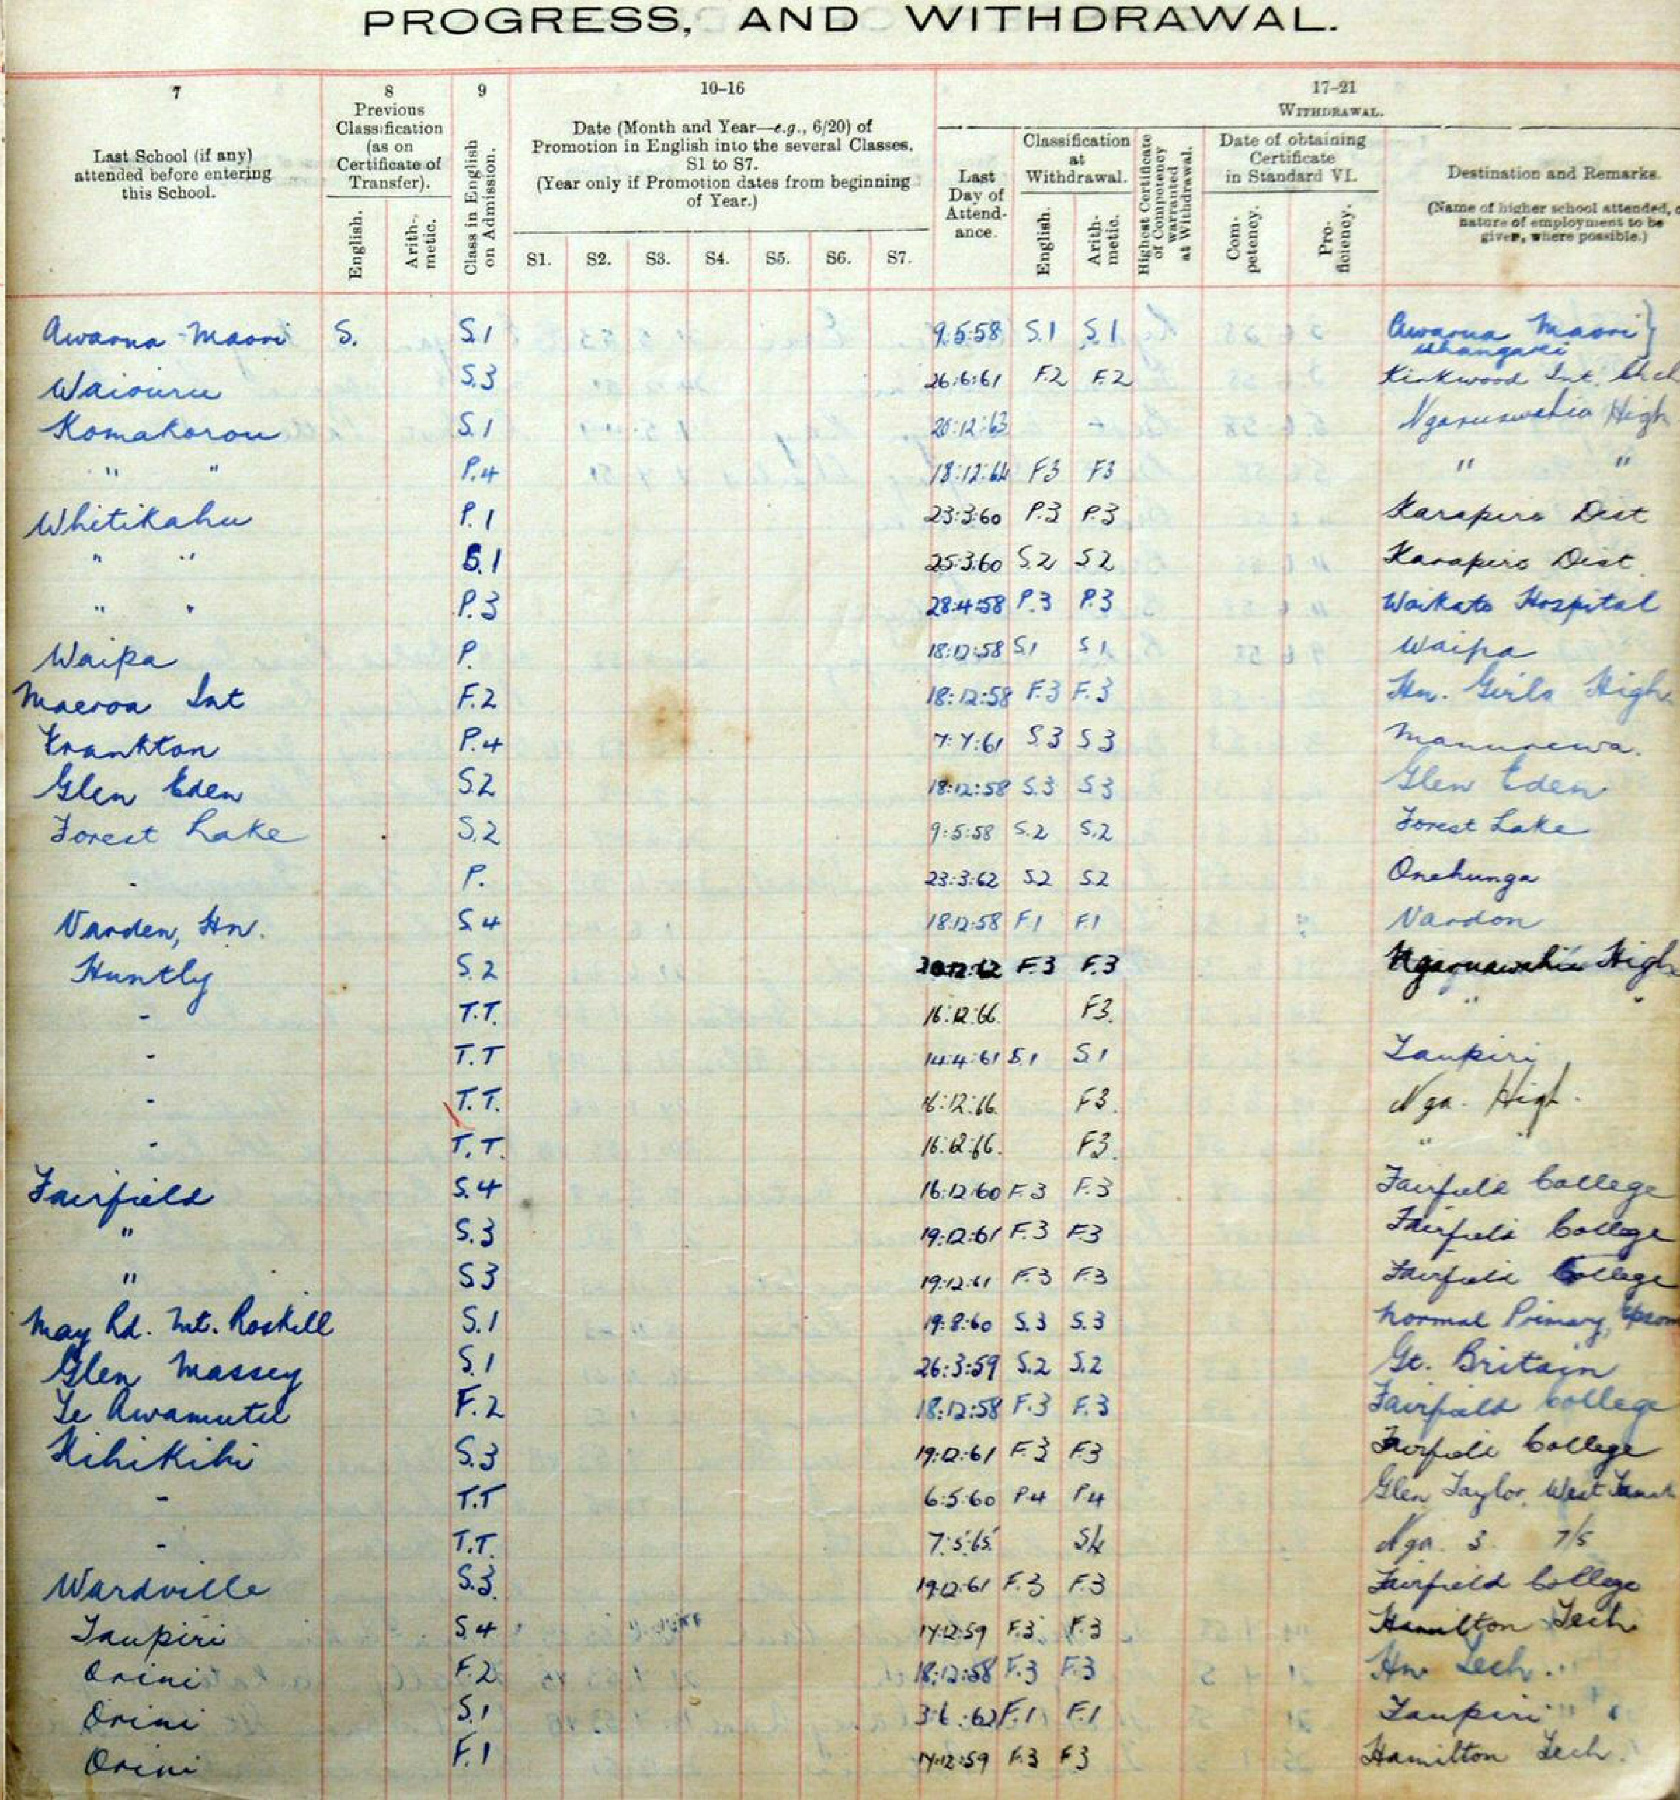 PROGRESS, AND WITHDRAWAL.
7 8 9 10–16 17–21
Last School (if any) attended before entering this School.
Previous Classification (as on Certificate of Transfer).
English. Arithmetic.
Class in English on Admission.
Date (Month and Year—e.g., 6/20) of Promotion in English into the several Classes, S1 to S7.
(Year only if Promotion dates from beginning of Year.)
S1. S2. S3. S4. S5. S6. S7.
WITHDRAWAL.
Last Day of Attendance.
Classification at Withdrawal.
English. Arithmetic.
Highest Certificate of Competency warranted at Withdrawal.
Date of obtaining Certificate in Standard VI.
Competency. Proficiency.
Destination and Remarks.
(Name of higher school attended, nature of employment to be given, where possible.)
Awarua Maori S. S.1 9:5:58 S.1 S.1 Awarua Maori }
Whangarei
Waiouru S.3 26:6:61 F.2 F.2 Kirkwood Int. Chch
Komakorou S.1 20:12:63 Ngaruawahia High
" " P.4 18:12:64 F3 F3 " "
Whitikahu P.1 23:3:60 P.3 P.3 Karapiro Dist
" " S.1 25:3:60 S.2 S2 Karapiro Dist.
" " P.3 28:4:58 P.3 P.3 Waikato Hospital
Waipa P. 18:12:58 S1 S1 Waipa
Maeroa Int F.2 18:12:58 F.3 F.3 Hn. Girls High
Frankton P.4 7:7:61 S3 S3 Manurewa.
Glen Eden S.2 18:12:58 S.3 S3 Glen Eden
Forest Lake S.2 9:5:58 S.2 S.2 Forest Lake
- P. 23:3:62 S2 S2 Onehunga
Varden, Hn. S.4 18:12:58 F1 F.1 Vardon
Huntly S.2 F.3 F.3 Ngaruawahia High
- T.T. 16:12:66 F3. " "
- T.T 14:4:61 S.1 S.1 Taupiri
- T.T. 16:12:66 F3. Nga. High.
- T.T. 16:12:66. F3. " "
Fairfield S.4 16:12:60 F.3 F.3 Fairfield College
" S.3 19:12:61 F.3 F3 Fairfield College
" S3 19:12:61 F.3 F3 Fairfield College
May Rd. Mt. Roskill S.1 19:8:60 S.3 S.3 Normal Primary, Epsom
Glen Massey S.1 26:3:59 S.2 S.2 Gt. Britain
Te Awamutu F.2 18:12:58 F.3 F.3 Fairfield College
Kihikihi S.3 19:12:61 F.3 F.3 Fairfield College
- T.T 6:5:60 P4 P4 Glen Taylor, West
- T.T. 7:5:65 S4 Nga. 3 7/5
Wardville S.3. 19:12:61 F.3 F.3 Fairfield College
Taupiri S.4 17:12:59 F.3 F.3 Hamilton Tech.
Orini F.2 18:12:58 F.3 F.3 Hn. Tech.
Orini S.1 3:6:62 F.1 F.1 Taupiri
Orini F.1 17:12:59 F.3 F3 Hamilton Tech.